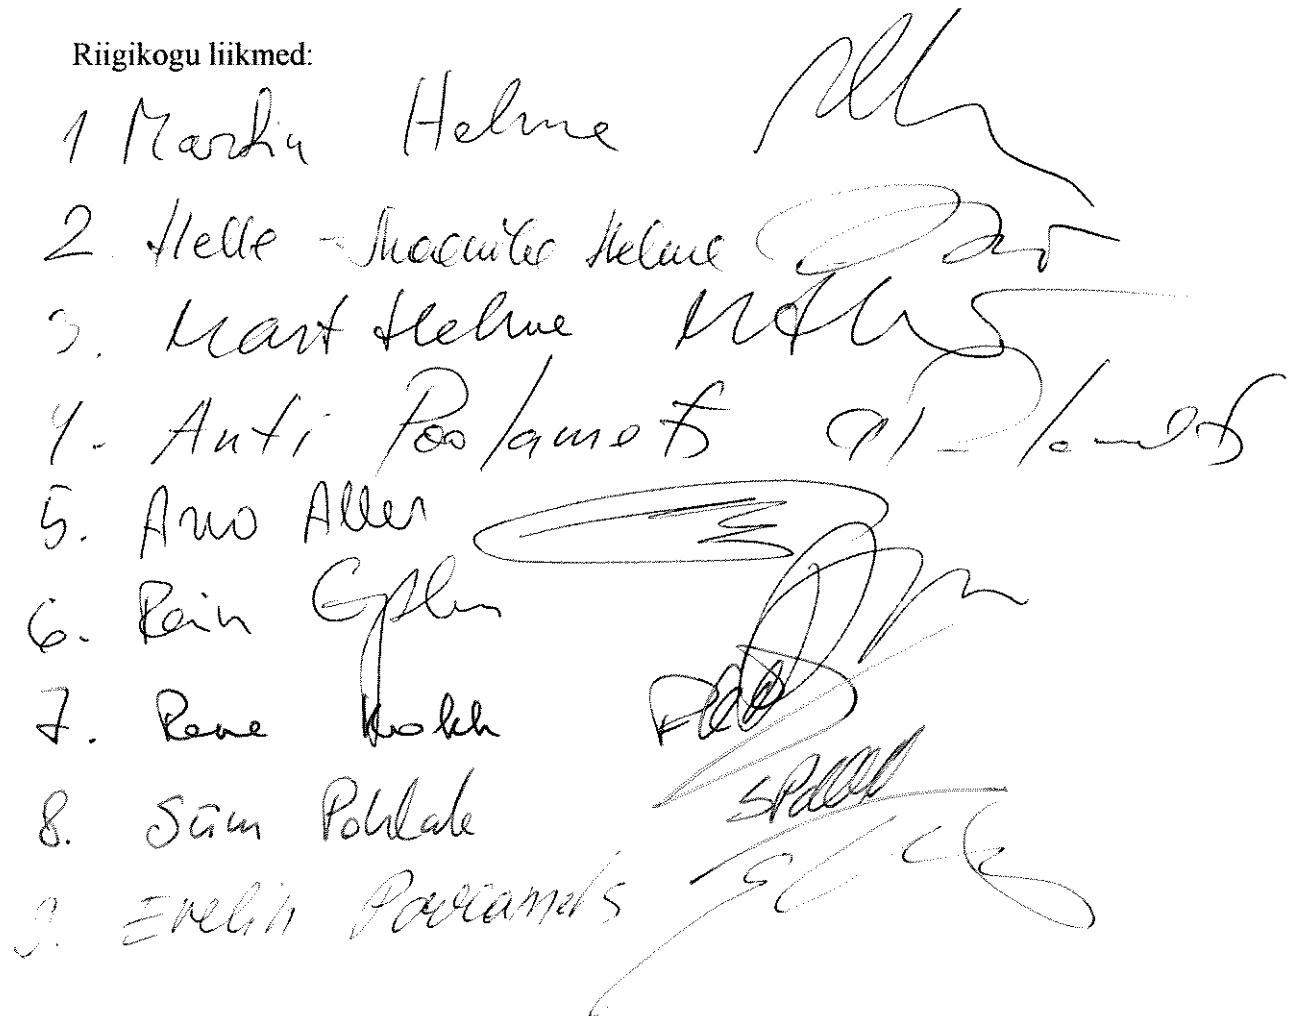 Riigikogu liikmed:
1 Martin Helme
2 Helle-Moonika Helme
3. Mart Helme
4. Anti Poolamets
5. Arvo Aller
6. Rain Epler
7. Rene Kokk
8. Siim Pohlak
9. Evelin Poolamets